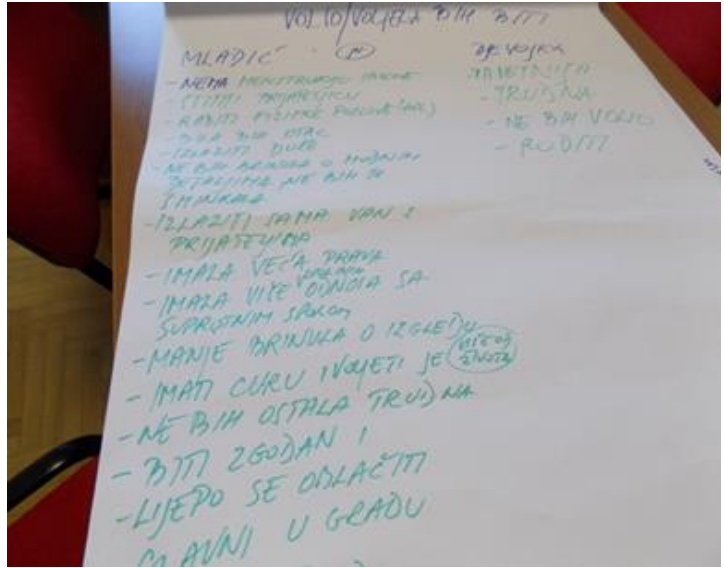 VOLIO/VOLJELA BIH BITI
MLADIĆ
- NEMA MENSTRUACIJU
- ŠTITITI PRIJATELJICU
- RADITI FIZIČKE POSLOVE
- BILA BIH OTAC
- IZLAZITI DULJE
- NE BIH BRINULA O MODNIM
DETALJIMA, NE BIH SE
ŠMINKALA
- IZLAZITI SAMA VAN S
PRIJATELJIMA
- IMALA VEĆA PRAVA
- IMALA VIŠE ODNOSA SA
SUPROTNIM SPOLOM
- MANJE BRINULA O IZGLEDU
- IMATI CURU I VOLJETI JE VIŠE OD
ŽIVOTA
- NE BIH OSTALA TRUDNA
- BITI ZGODAN I
- LIJEPO SE OBLAČITI
GLAVNI U GRADU
DJEVOJKA
- TRUDNA
- NE BIH VOLIO
- RODITI